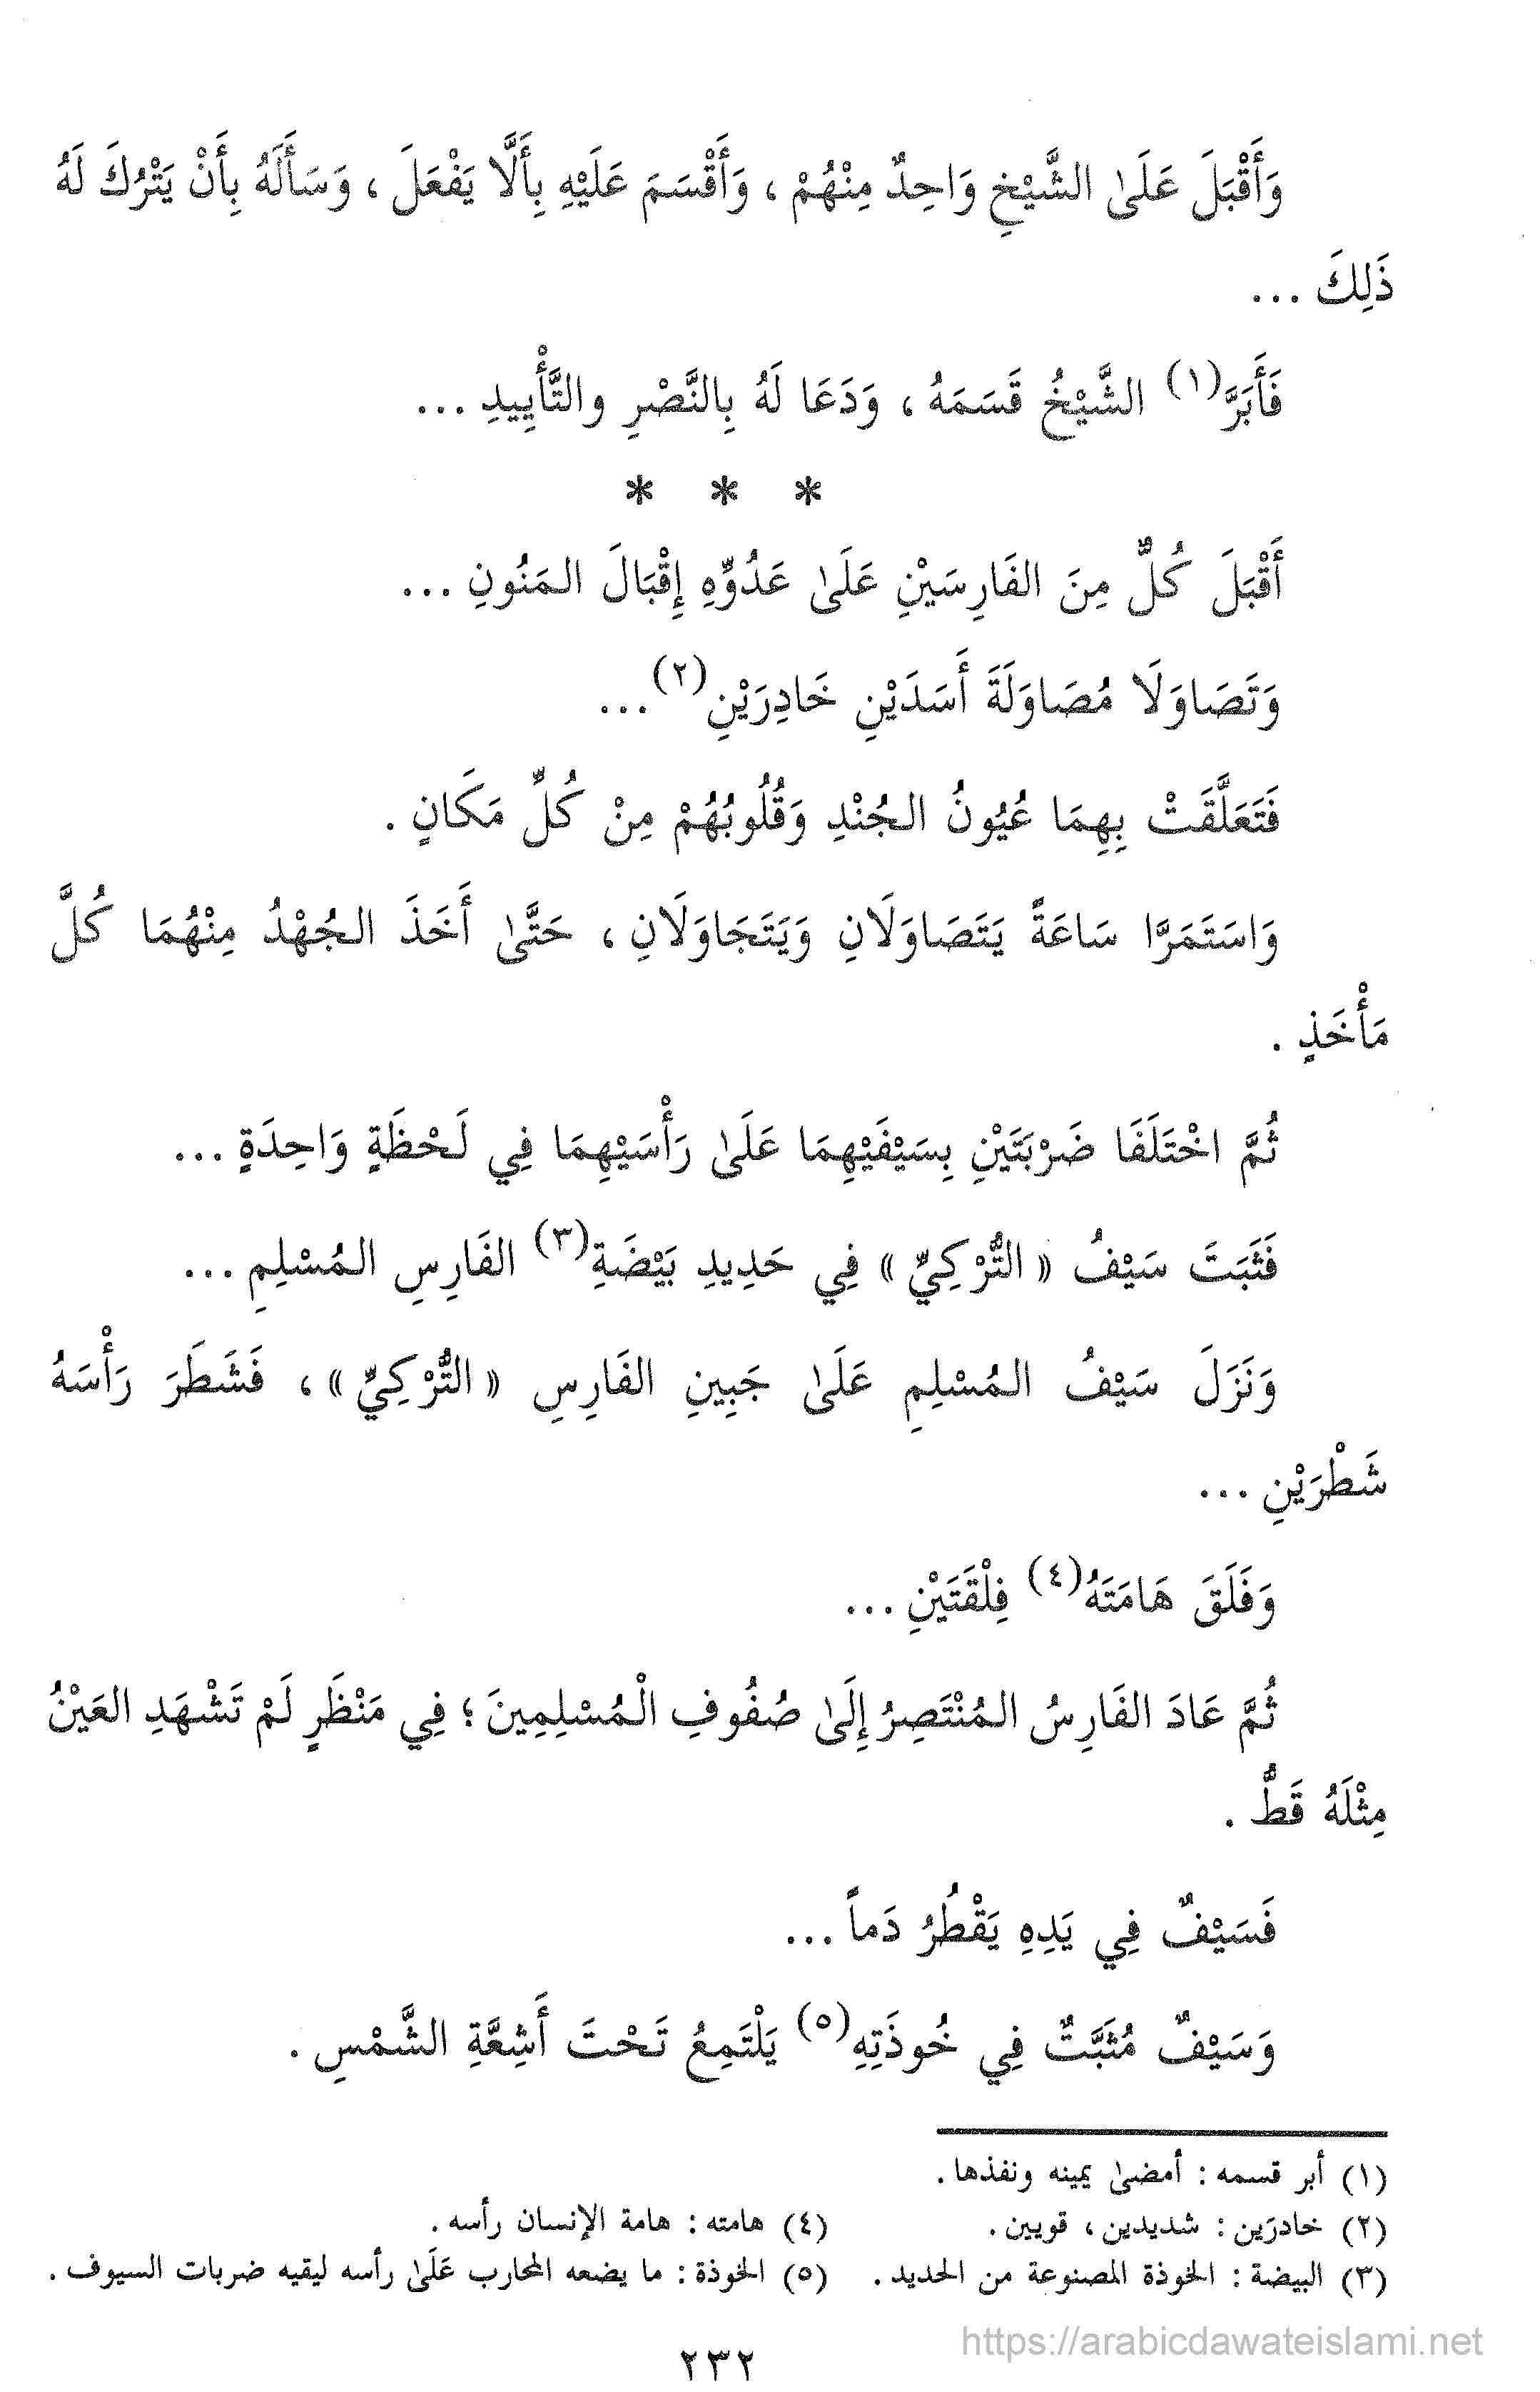 وَأَقْبَلَ عَلَىٰ الشَّيْخِ وَاحِدٌ مِنْهُمْ ، وَأَقْسَمَ عَلَيْهِ بِأَلَّا يَفْعَلَ ، وَسَأَلَهُ بِأَنْ يَتْرُكَ لَهُ
ذَلِكَ ...
فَأَبَرَّ(١) الشَّيْخُ قَسَمَهُ ، وَدَعَا لَهُ بِالنَّصْرِ والتَّأْيِيدِ ...
* * *
أَقْبَلَ كُلٌّ مِنَ الفَارِسَيْنِ عَلَىٰ عَدُوِّهِ إِقْبَالَ المَنُونِ ...
وَتَصَاوَلَا مُصَاوَلَةَ أَسَدَيْنِ خَادِرَيْنِ(٢) ...
فَتَعَلَّقَتْ بِهِمَا عُيُونُ الجُنْدِ وَقُلُوبُهُمْ مِنْ كُلِّ مَكَانٍ .
وَاسَتَمَرَّا سَاعَةً يَتَصَاوَلَانِ وَيَتَجَاوَلَانِ ، حَتَّىٰ أَخَذَ الجُهْدُ مِنْهُمَا كُلَّ
مَأْخَذٍ .
ثُمَّ اخْتَلَفَا ضَرْبَتَيْنِ بِسَيْفَيْهِمَا عَلَىٰ رَأْسَيْهِمَا فِي لَحْظَةٍ وَاحِدَةٍ ...
فَثَبَتَ سَيْفُ « التُّرْكِيِّ » فِي حَدِيدِ بَيْضَةِ(٣) الفَارِسِ المُسْلِمِ ...
وَنَزَلَ سَيْفُ المُسْلِمِ عَلَىٰ جَبِينِ الفَارِسِ « التُّرْكِيِّ » ، فَشَطَرَ رَأْسَهُ
شَطْرَيْنِ ...
وَفَلَقَ هَامَتَهُ(٤) فِلْقَتَيْنِ ...
ثُمَّ عَادَ الفَارِسُ المُنْتَصِرُ إِلَىٰ صُفُوفِ الْمُسْلِمِينَ ؛ فِي مَنْظَرٍ لَمْ تَشْهَدِ العَيْنُ
مِثْلَهُ قَطُّ .
فَسَيْفٌ فِي يَدِهِ يَقْطُرُ دَماً ...
وَسَيْفٌ مُثَبَّتٌ فِي خُوذَتِهِ(٥) يَلْتَمِعُ تَحْتَ أَشِعَّةِ الشَّمْسِ .
(١) أبر قسمه : أمضىٰ يمينه ونفذها .
(٢) خادرَين : شديدين ، قويين .
(٣) البيضة : الخوذة المصنوعة من الحديد .
(٤) هامته : هامة الإنسان رأسه .
(٥) الخوذة : ما يضعه المحارب عَلَىٰ رأسه ليقيه ضربات السيوف .
https://arabicdawateislami.net
٢٣٢